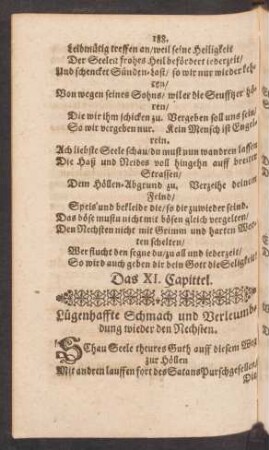 188.
Leibmütig treffen an/weil seine Heiligkeit
Der Seeleit frohes Heil befördert iederzeit/
Und schencket Sünden-last/so wir nur wieder keh-
ren/
Von wegen seines Sohns/wil er die Seuffzer hö-
ren/
Die wir ihm schicken zu. Vergeben soll uns sein/
So wir vergeben nur. Kein Mensch ist Engel-
rein.
Ach liebste Seele schau/du must nun wandren lassen
Die Haß und Neides voll hingehn auff breiter
Strassen/
Dem Höllen-Abgrund zu. Verzeihe deinem
Feind/
Speis' und bekleide die/so dir zuwieder seind.
Das böse mustu nicht mit bösen gleich vergelten/
Den Nechsten nicht mit Grimm und harten Wor-
ten schelten/
Wer flucht den segne du/zu all und iederzeit/
So wird auch geben dir dein Gott die Seligkeit/
Das XI. Capittel.
Lügenhaffte Schmach und Verleumb-
dung wieder den Nechsten.
SChau Seele theures Guth auff diesem Weg
zur Höllen
Mit andern lauffen fort des Satans Purschgesellen/
Die